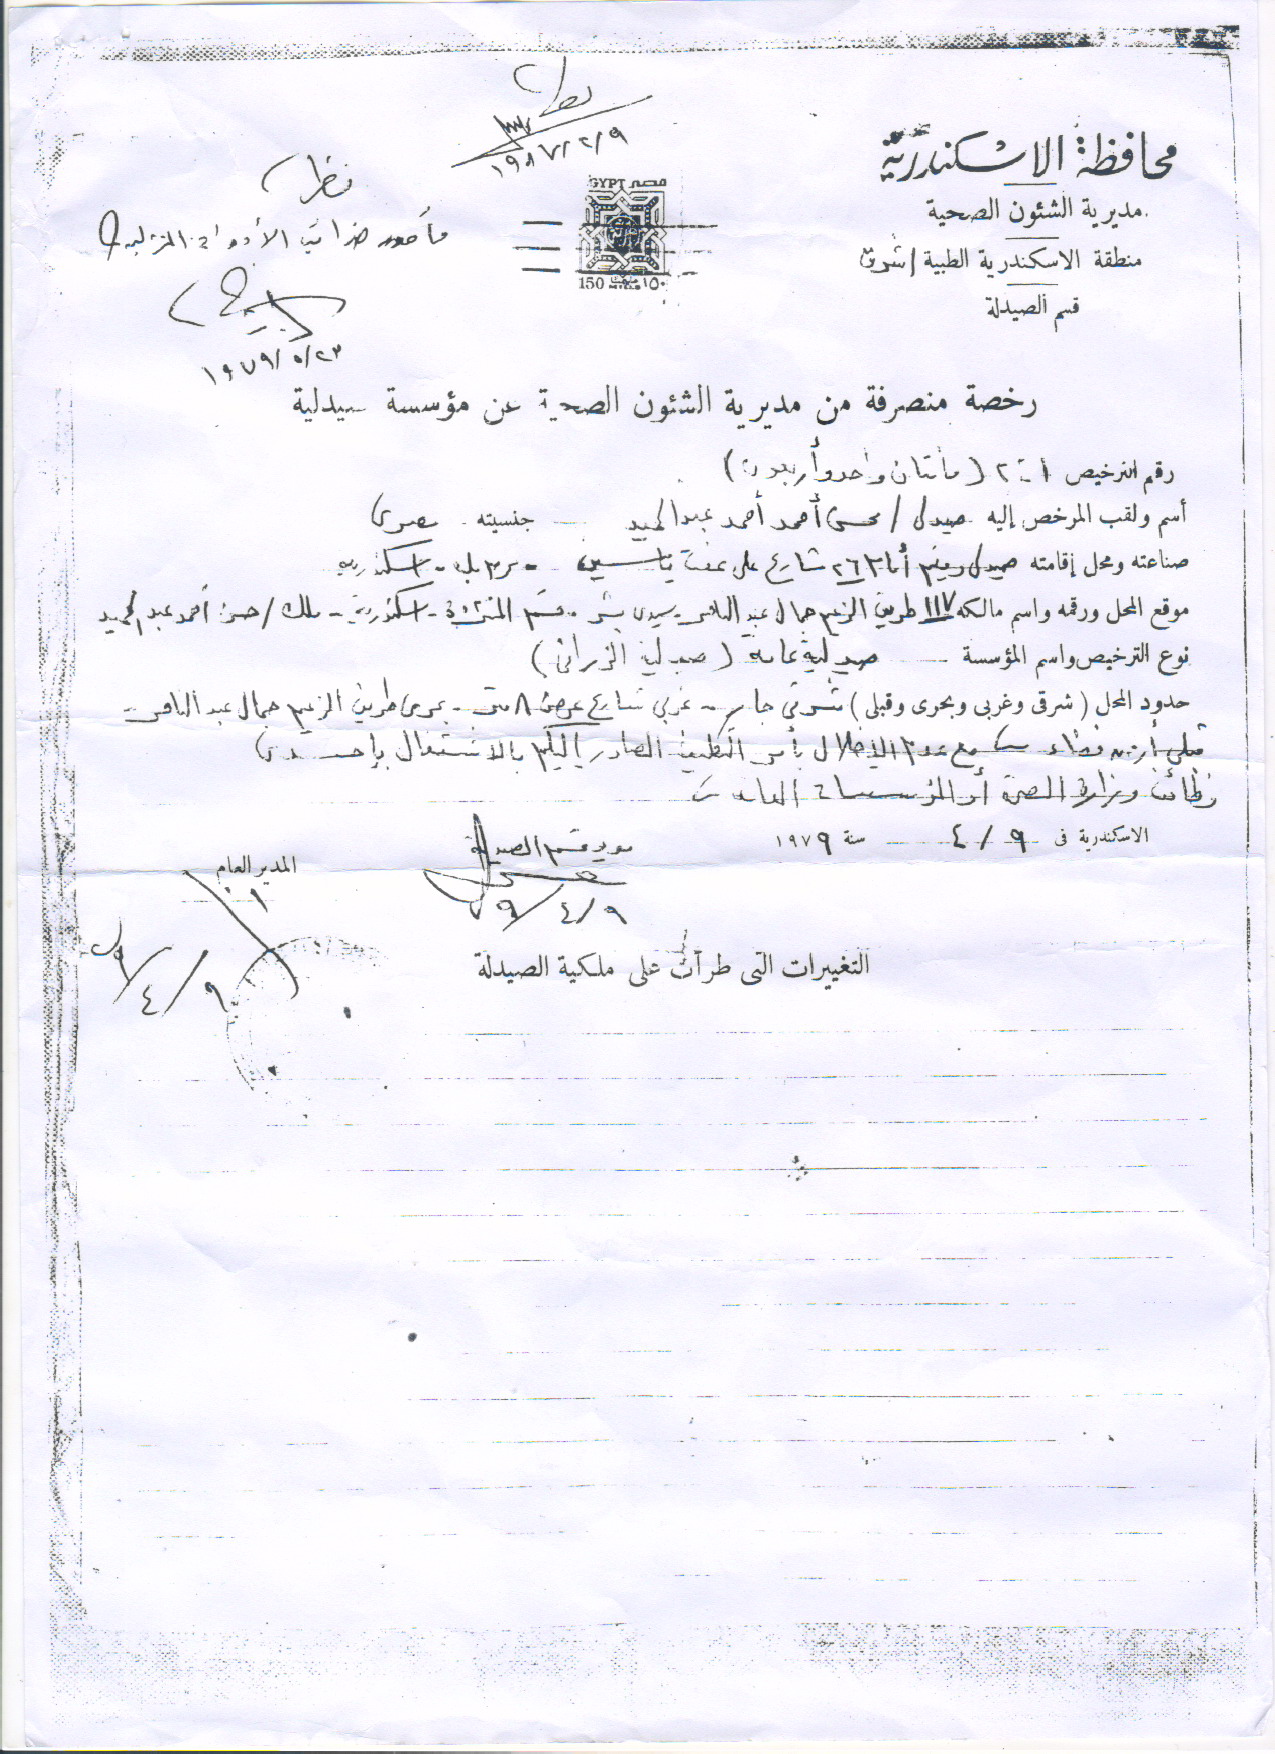 محافظة الاسكندرية
مديرية الشئون الصحية
منطقة الاسكندرية الطبية / شرق
قسم الصيدلة
نظر
١٩٨٧/٢/٩
EGYPT مصر
150 MILLS مليما ١٥٠
نظر
مأمور ضرائب
١٩٧٩/٥/٢٣
رخصة منصرفة من مديرية الشئون الصحية عن مؤسسة صيدلية
رقم الترخيص ( مائتان واحد وأربعون )
أسم ولقب المرخص إليه صيدلى / محسن أحمد أحمد عبد الحميد جنسيته مصرى
صناعته ومحل إقامته صيدلى شارع على اسكندرية
موقع المحل ورقمه واسم مالكه ١١٧ طريق الزعيم جمال عبد الناصر - سيدى بشر - قسم المنتزة - اسكندرية - ملك / حسن أحمد عبد الحميد
نوع الترخيص واسم المؤسسة صيدلية عامة
حدود المحل ( شرقى وغربى وبحرى وقبلى ) شرقى جار - غربى شارع عرض ٨ متر - بحرى طريق الزعيم جمال عبد الناصر
قبلى أرض فضاء مع عدم الإخلال بأمر التكليف الصادر إليكم بالاشتغال بإحدى
وظائف وزارة الصحة أو المؤسسات العامة
الاسكندرية فى ٩ / ٤ سنة ١٩٧٩
مدير قسم الصيدلة
٧٩/٤/٩
المدير العام
٧٩/٤/٩
التغييرات التى طرأت على ملكية الصيدلة